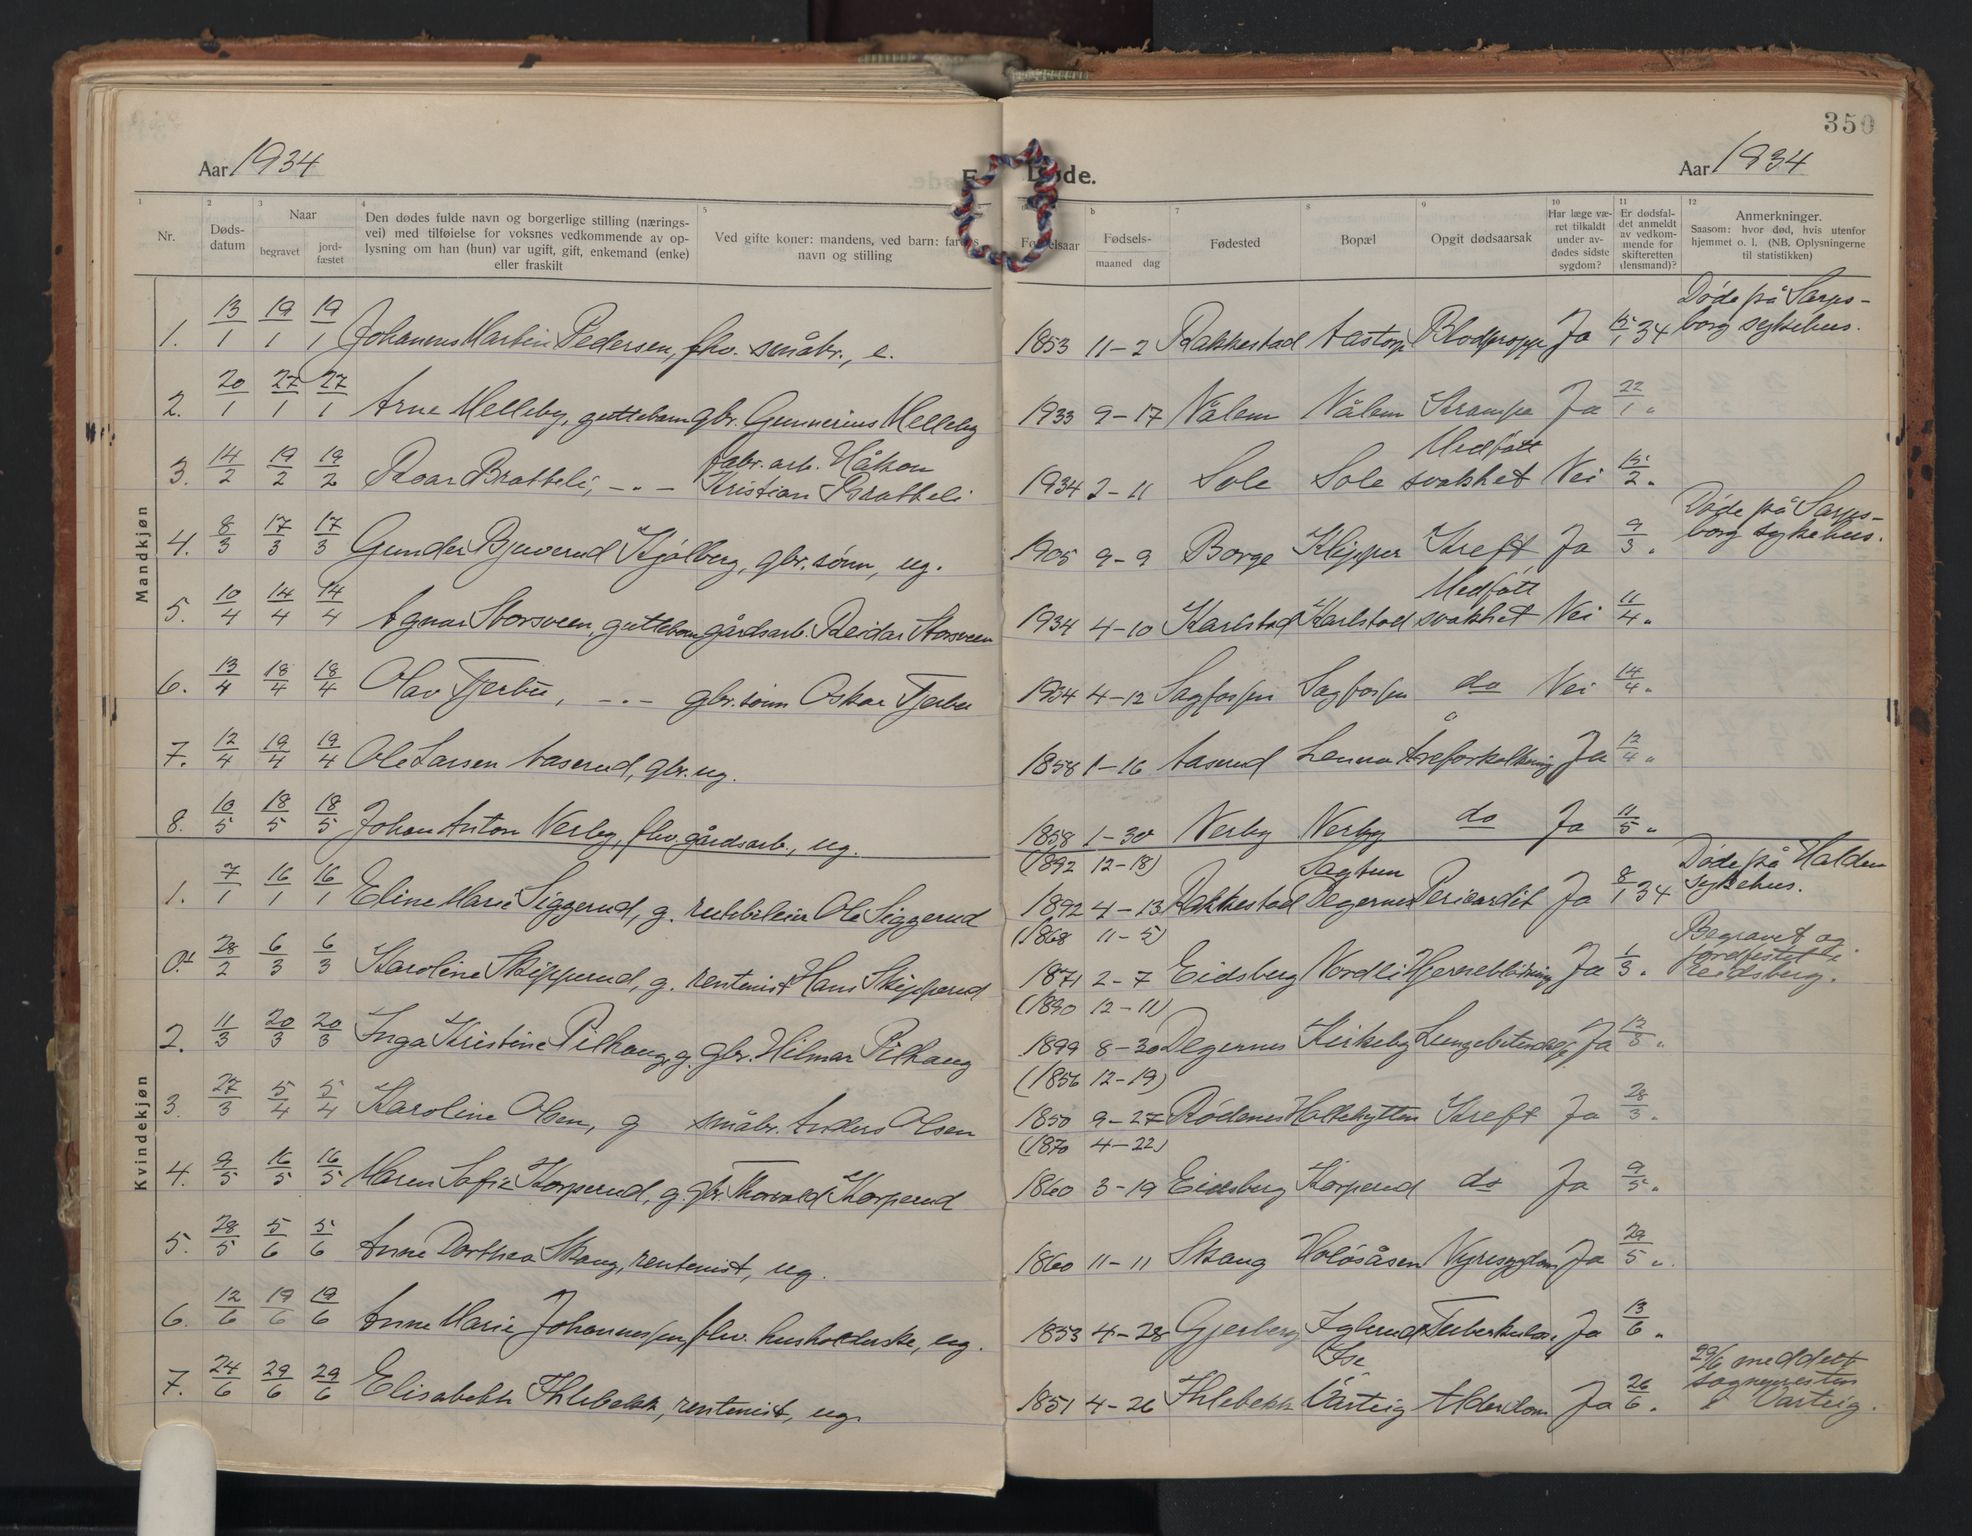 350
Aar 1934
Døde.
Aar 1934
1 2 3 4 5
Nr.
Døds-
datum
Naar
begravet
jord-
fæstet
Den dødes fulde navn og borgerlige stilling (nærings-
vei) med tilføielse for voksnes vedkommende av op-
lysning om han (hun) var ugift, gift, enkemand (enke)
eller fraskilt
Ved gifte koner: mandens, ved barn: farens
navn og stilling
b 7 8 9 10 11 12
Fødselsaar
Fødsels-
maaned dag
Fødested
Bopæl
Opgit dødsaarsak
Har læge væ-
ret tilkaldt
under av-
dødes sidste
sygdom?
Er dødsfal-
det anmeldt
av vedkom-
mende for
skifteretten
(lensmand)?
Anmerkninger.
Saasom: hvor død, hvis utenfor
hjemmet o. l. (NB. Oplysningerne
til statistikken)
Mandkjøn
1. 13/1 19/1 19/1 Johannes Martin Pedersen, fhv. småbr., e. 1853 11-2 Rakkestad Aastorp Blodpropp Ja 15/1 34 Døde på Sarps-
borg sykehus.
2. 20/1 27/1 27/1 Arne Melleby, guttebarn gbr. Gunnerius Melleby 1933 9-17 Nålem Nålem Krampe Ja 22/1 "
3. 14/2 19/2 19/2 Roar Bratteli, -"- fabr. arb. Håkon
Kristian Bratteli 1934 2-11 Sole Sole Medfødt
svakhet Nei 15/2 "
4. 8/3 17/3 17/3 Gunder Bjuverud Kjølberg, gbr. sønn, ug. 1905 9-9 Borge Klipper Kreft Ja 9/3 " Døde på Sarps-
borg sykehus.
5. 10/4 14/4 14/4 Agnar Storsveen, guttebarn gårdsarb. Reidar Storsveen 1934 4-10 Karlstad Karlstad Medfødt
svakhet Nei 11/4 "
6. 13/4 18/4 18/4 Olav Tjerbu, -"- gbr. sønn Oskar Tjerbu 1934 4-12 Sagfossen Sagfossen do Nei 14/4 "
7. 12/4 19/4 19/4 Ole Larsen Aaserud, gbr. ug. 1858 1-16 Aaserud Lenna Åreforkalkning Ja 12/4 "
8. 10/5 18/5 18/5 Johan Anton Nerby, fhv. gårdsarb., ug. 1858 1-30 Nerby Nerby do Ja 11/5 "
Kvindekjøn
(1892 12-18)
1. 7/1 16/1 16/1 Eline Marie Siggerud, g. rutebileier Ole Siggerud 1892 4-13 Rakkestad Sagtun
Degernes Pericardit Ja 8/1 34 Døde på Halden
sykehus.
(1868 11-5)
0. 28/2 6/3 6/3 Karoline Skipperud, g. rentenist Hans Skipperud 1871 2-7 Eidsberg Nordli Hjerneblødning Ja 1/3 " Begravet og
jordfestet i
Eidsberg.
(1890 12-11)
2. 11/3 20/3 20/3 Inga Kristine Pilhaug, g. gbr. Hilmar Pilhaug 1899 8-30 Degernes Kirkeby Lungebetendelse Ja 12/3 "
(1856 12-19)
3. 27/3 5/4 5/4 Karoline Olsen, g småbr. Anders Olsen 1850 9-27 Rødenes Holtehytten Kreft Ja 28/3 "
(1870 4-22)
4. 9/5 16/5 16/5 Maren Sofie Korperud, g. gbr. Thorvald Korperud 1860 3-19 Eidsberg Korperud do Ja 9/5 "
5. 28/5 5/6 5/6 Anne Dorthea Skaug, rentenist, ug. 1860 11-11 Skaug Holøsåsen Nyresygdom Ja 29/5 "
6. 12/6 19/6 19/6 Anne Marie Johannessen, fhv. husholderske, ug. 1853 4-28 Gjerberg Iglerud Tuberkulose Ja 13/6 "
7. 24/6 29/6 29/6 Elisabeth Ihlebekk, rentenist, ug. 1851 4-26 Ihlebekk Ise
Varteig Alderdom Ja 26/6 " 29/6 meddelt
sognepresten
i Varteig.